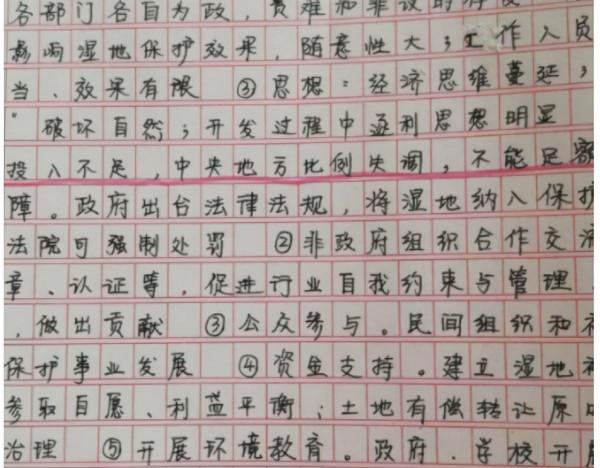 各部门各自为政，责难和非议的
影响湿地保护效果，随意性大；工作人员
当、效果有限 ③思想：经济思维蔓延；
"破坏自然；开发过程中逐利思想明显
投入不足，中央地方比例失调，不能足额
障。政府出台法律法规，将湿地纳入保护
法院可强制处罚 ②非政府组织合作交流
章、认证等，促进行业自我约束与管理，
，做出贡献 ③公众参与。民间组织和
保护事业发展 ④资金支持。建立湿地
参取自愿、利益平衡；土地有偿转让原
治理 ⑤开展环境教育。政府、学校开展